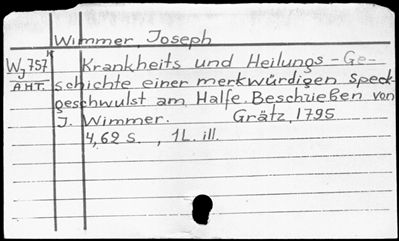 Wimmer, Joseph
Wj 757 K Krankheits und Heilungs-Ge-
AHT. schichte einer merkwürdigen Speck-
geschwulst am Halse. Beschrieben von
J. Wimmer. Grätz, 1795
4,62 S., 1L. ill.